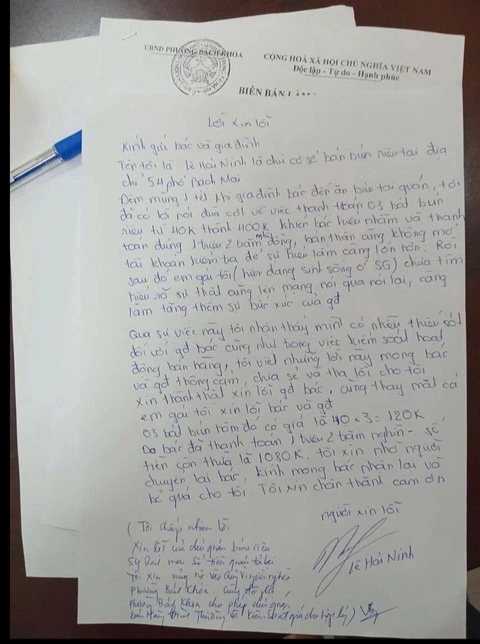 UBND PHƯỜNG BẠCH KHOA
CỘNG HOÀ XÃ HỘI CHỦ NGHĨA VIỆT NAM
Độc lập - Tự do - Hạnh phúc
BIÊN BẢN
Lời xin lỗi
Kính gửi bác và gia đình
Tên tôi là Lê Hải Ninh là chủ cơ sở bán bún riêu tại địa
chỉ 54 phố Bạch Mai
Đêm mùng 1 tết khi gia đình bác đến ăn bún tại quán, tôi
đã có lời nói đùa cợt về việc thanh toán 03 bát bún
riêu từ 40K thành 400K khiến bác hiểu nhầm và thanh
toán đúng 1 triệu 2 trăm nghìn đồng, bản thân cũng không mở
tài khoản kiểm tra để sự hiểu lầm càng lớn hơn. Rồi
sau đó em gái tôi (hiện đang sinh sống ở SG) chưa tìm
hiểu rõ sự thật cũng lên mạng nói qua nói lại, càng
làm tăng thêm sự bức xúc của gđ
Qua sự việc này tôi nhận thấy mình có nhiều thiếu sót
đối với gđ bác cũng như trong việc kiểm soát hoạt
động bán hàng, tôi viết những lời này mong bác
và gđ thông cảm, chia sẻ và tha lỗi cho tôi
Xin thành thật xin lỗi gđ bác, cũng thay mặt cả
em gái tôi xin lỗi bác và gđ
03 bát bún hôm đó có giá là 40 x 3 = 120K
Do bác đã thanh toán 1 triệu 2 trăm nghìn - số
tiền còn thừa là 1080K, tôi xin nhờ người
chuyển lại bác, kính mong bác nhận lại và
bỏ quá cho tôi. Tôi xin chân thành cảm ơn
người xin lỗi
Lê Hải Ninh
(Tôi chấp nhận lời
Xin lỗi của chủ quán bún riêu
54 Bạch Mai Số tiền quán trả lại
Tôi xin ủng hộ vào Quỹ Vì người nghèo
phường Bách Khoa
phường Bách Khoa cho phép chủ quán
bán hàng bình thường